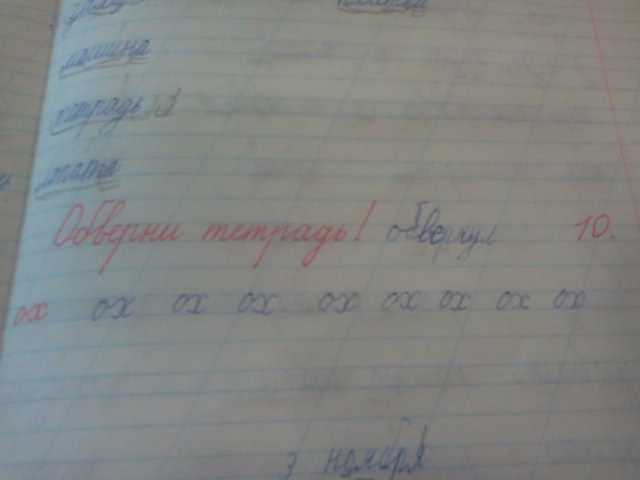 машина
тетрадь
Обверни тетрадь! обвернул 10.
ох ох ох ох ох ох ох ох ох
3 ноября